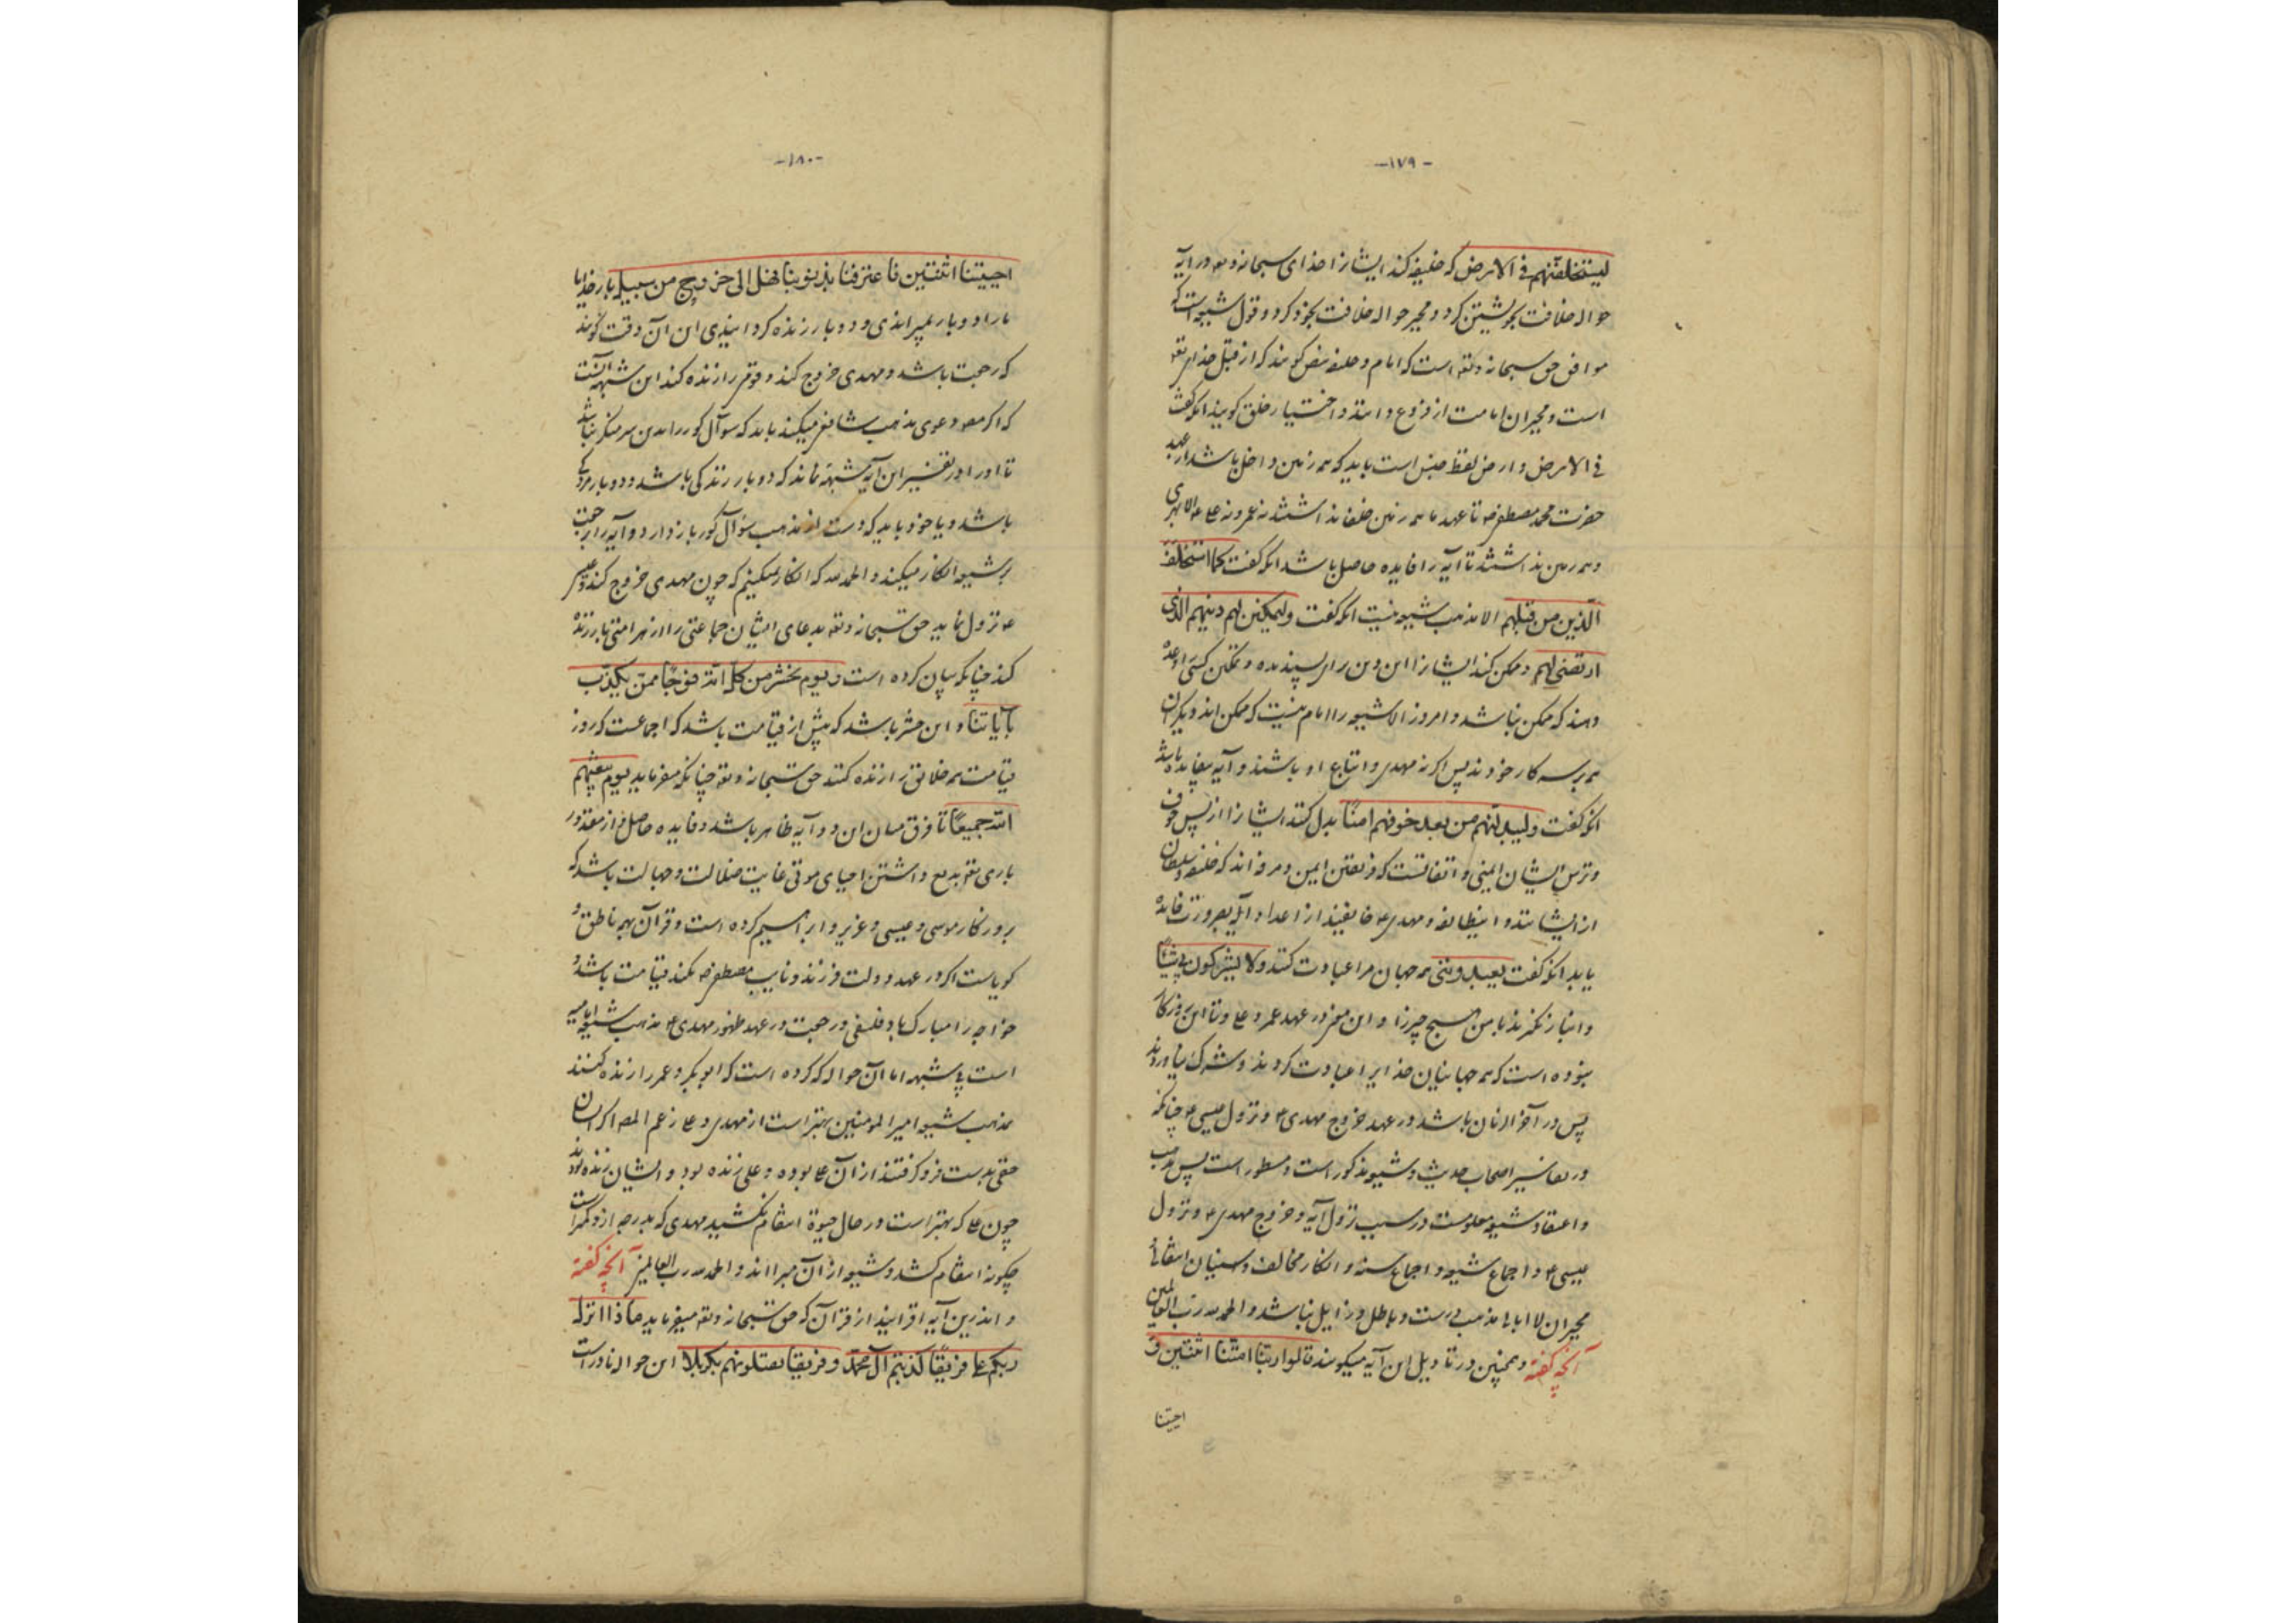 -۱۷۹-
لیستخلفنهم فی الارض که خلیفه کند ایشانرا خدای سبحانه وتعه در آیه
حواله خلافت بخویشتن کرد و مجبر حواله خلافت بخود کرد و قول شیعه است که
موافق حق سبحانه وتعه است که امام و خلیفه نص گویند که از قبل خدای تعه
است و مجبران امامت از فروع دانند و اختیار خلق گویند آنکه گفت
فی الارض و ارض لفظ جنس است باید که همه زمین داخل باشد از عهد
حضرت محمد مصطفی صه تا عهد ما همه زمین خلفا نداشتند نه عمر و نه علی ۴ الا مهدی
همه زمین نداشتند تا آیه را فایده حاصل باشد آنکه گفت کما استخلف
الذین من قبلهم الا مذهب شیعه نیست آنکه گفت ولیمکنن لهم دینهم الذی
ارتضی لهم و ممکن کند ایشانرا این دین را پسندیده و تمکین کسی را وعده
دهند که ممکن نباشد و امروز الا شیعه را امام نیست که ممکن اند دیگران
همه بر سر کار خودند پس اگر نه مهدی و اتباع او باشند و آیه بیفایده باشد
آنکه گفت ولیبدلنهم من بعد خوفهم امنا بدل کند ایشانرا از پس خوف
و ترس ایشان ایمنی و اتفاقست که فریقین ایمن و مرفه اند که خلیفه و سلطان
از ایشانند و اینطایفه و مهدی ۴ خایفیند از اعدا و آیه بضرورت فایده
باید آنکه گفت یعبدوننی همه جهان مرا عبادت کنند و لا یشرکون بی شیئا
و انباز نگیرند با من هیچ چیز را و این معنی در عهد عمر و علی و تا این روزگار
نبوده است که همه جهانیان خدایرا عبادت کردند و شرک نیاوردند
پس در آخر الزمان باشد در عهد خروج مهدی ۴ و نزول عیسی ۴ چنانکه
در تفاسیر اصحاب حدیث و شیعه مذکور است و مسطور است پس مذهب
و اعتقاد شیعه معلومست در سبب نزول آیه و خروج مهدی ۴ و نزول
عیسی ۴ و اجماع شیعه و اجماع سنه و انکار مخالف و سنیان انتقالی
مجبران لا ابالی مذهب درست و باطل و زایل نباشد و الحمدلله رب العالمین
آنچه گفته و همچنین در تاویل این آیه میگویند قالوا ربنا امتنا اثنتین و
احییتنا
-۱۸۰-
احییتنا اثنتین فاعترفنا بذنوبنا فهل الی خروج من سبیل بار خدایا
ما را دو بار بمیرانیدی و دو بار زنده کردانیدی این آن وقت گویند
که رجعت باشد و مهدی خروج کند و قوم را زنده کند این شبهه آنست
که اگر مصه دعوی مذهب شافعی میکند باید که سوآل گور را بدین سر منکر نباشد
تا او را در تفسیر این آیه شبهة نماند که دو بار زندگی باشد و دو بار مردگی
باشد و یا خود باید که دست از مذهب سؤال گور باز دارد و آیه را رجعت
بر شیعه انکار میکند و الحمدلله که انکار نمیکنیم که چون مهدی خروج کند و عیسی
۴ نزول نماید حق سبحانه وتعه بدعای ایشان جماعتی را از هر امتی باز زنده
کند چنانکه بیان کرده است و یوم نحشر من کل امة فوجا ممن یکذب
بآیاتنا و این حشر باشد که پیش از قیامت باشد که اجماعست که روز
قیامت همه خلائق را زنده کند حق سبحانه وتعه چنانکه میفرماید یوم یبعثهم
الله جمیعا تا فرق میان این دو آیه ظاهر باشد و فایده حاصل و از مقدور
باری تعه بدیع داشتن احیای موتی غایت ضلالت و جهالت باشد که
بروزگار موسی و عیسی و عزیر و ابراهیم کرده است و قرآن بهمه ناطق و
گویاست اگر در عهد دولت فرزند و نایب مصطفی صه بکند قیامت باشد و
خواجه را مبارک باد فلسفی و رجعت در عهد ظهور مهدی ۴ مذهب شیعه امامیه
است بی شبهه اما آن حواله که کرده است که ابوبکر و عمر را زنده کنند
بمذهب شیعه امیر المومنین بهتر است از مهدی و علی زعم المصه اگر ایشان
حقی بدست فرو گرفتند از آن علی بوده و علی زنده بود و ایشان زنده بودند
چون علی که بهتر است در حال حیوة انتقام نکشید مهدی که بدرجه از او کمتر است
چگونه انتقام کشد و شیعه از آن مبرا اند و الحمدلله رب العالمین آنچه گفته
و اندرین آیه افزایند از قرآن که حق سبحانه وتعه میفرماید ماذا انزل
ربکم علی فریقا کذبتم آل محمد و فریقا یقتلونهم بکربلا این حواله نادرست